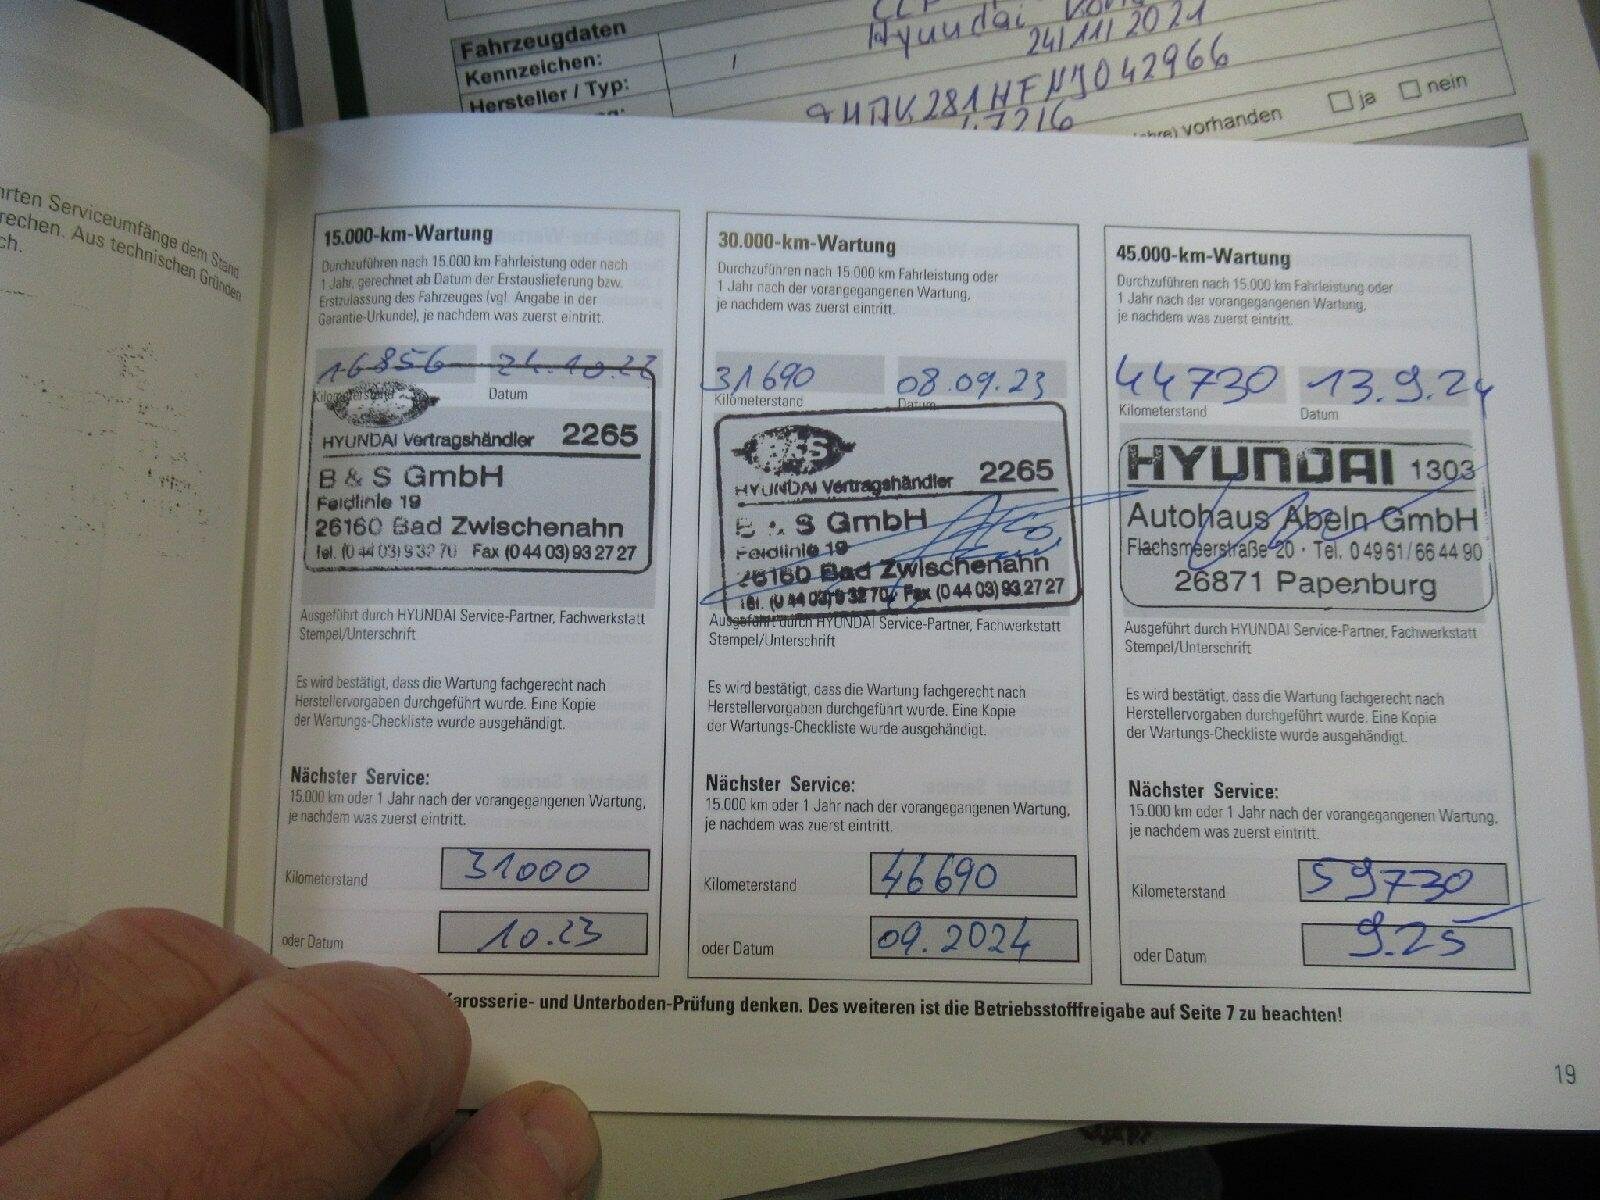 Hyundai
Fahrzeugdaten
24/11/2021
Kennzeichen:
Hersteller / Typ:
47216
vorhanden ja nein
Serviceumfänge dem Stand
Aus technischen Gründen
15.000-km-Wartung
Durchzuführen nach 15.000 km Fahrleistung oder nach
1 Jahr, gerechnet ab Datum der Erstauslieferung bzw.
Erstzulassung des Fahrzeuges (vgl. Angabe in der
Garantie-Urkunde), je nachdem was zuerst eintritt.
16856
Kilometerstand Datum
HYUNDAI Vertragshändler 2265
B & S GmbH
Feldlinie 19
26160 Bad Zwischenahn
Tel. (0 44 03) 9 32 70 Fax (0 44 03) 93 27 27
Ausgeführt durch HYUNDAI Service-Partner, Fachwerkstatt
Stempel/Unterschrift
Es wird bestätigt, dass die Wartung fachgerecht nach
Herstellervorgaben durchgeführt wurde. Eine Kopie
der Wartungs-Checkliste wurde ausgehändigt.
Nächster Service:
15.000 km oder 1 Jahr nach der vorangegangenen Wartung,
je nachdem was zuerst eintritt.
Kilometerstand 31000
oder Datum 10.23
30.000-km-Wartung
Durchzuführen nach 15.000 km Fahrleistung oder
1 Jahr nach der vorangegangenen Wartung,
je nachdem was zuerst eintritt.
31690 08.09.23
Kilometerstand Datum
B&S
HYUNDAI Vertragshändler 2265
B & S GmbH
Feldlinie 19
26160 Bad Zwischenahn
Tel. (0 44 03) 9 32 70 Fax (0 44 03) 93 27 27
Ausgeführt durch HYUNDAI Service-Partner, Fachwerkstatt
Stempel/Unterschrift
Es wird bestätigt, dass die Wartung fachgerecht nach
Herstellervorgaben durchgeführt wurde. Eine Kopie
der Wartungs-Checkliste wurde ausgehändigt.
Nächster Service:
15.000 km oder 1 Jahr nach der vorangegangenen Wartung,
je nachdem was zuerst eintritt.
Kilometerstand 46690
oder Datum 09.2024
45.000-km-Wartung
Durchzuführen nach 15.000 km Fahrleistung oder
1 Jahr nach der vorangegangenen Wartung,
je nachdem was zuerst eintritt.
44730 13.9.24
Kilometerstand Datum
HYUNDAI 1303
Autohaus Abeln GmbH
Flachsmeerstraße 20 · Tel. 0 49 61/66 44 90
26871 Papenburg
Ausgeführt durch HYUNDAI Service-Partner, Fachwerkstatt
Stempel/Unterschrift
Es wird bestätigt, dass die Wartung fachgerecht nach
Herstellervorgaben durchgeführt wurde. Eine Kopie
der Wartungs-Checkliste wurde ausgehändigt.
Nächster Service:
15.000 km oder 1 Jahr nach der vorangegangenen Wartung,
je nachdem was zuerst eintritt.
Kilometerstand 59730
oder Datum 9.25
Karosserie- und Unterboden-Prüfung denken. Des weiteren ist die Betriebsstofffreigabe auf Seite 7 zu beachten!
19